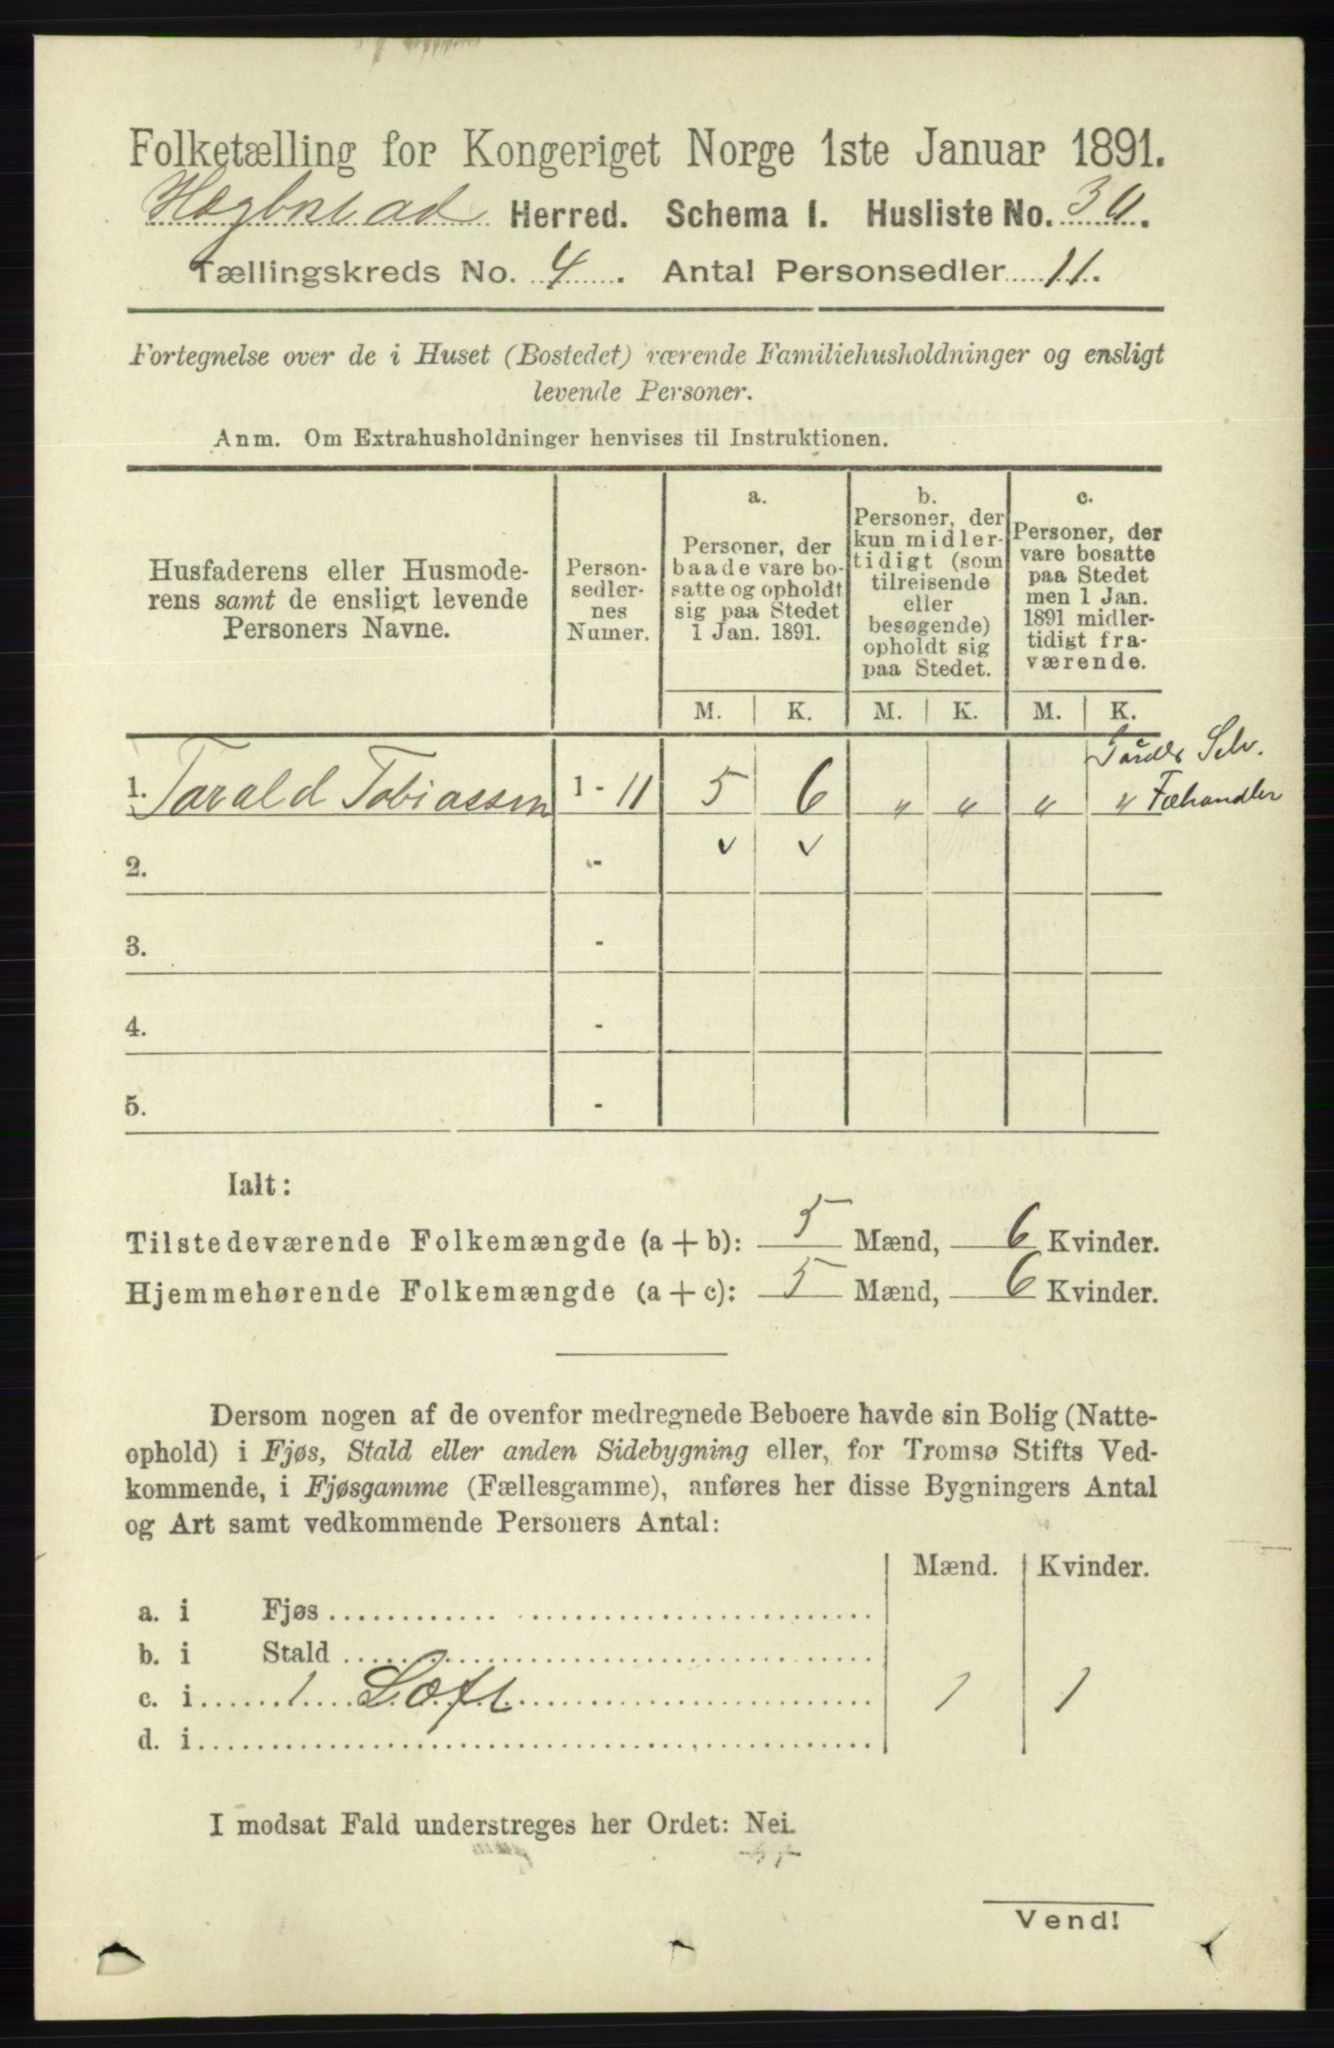 Folketælling for Kongeriget Norge 1ste Januar 1891.
Hægbostad Herred. Schema I. Husliste No.
Tællingskreds No. 4. Antal Personsedler 11.
Fortegnelse over de i Huset (Bostedet) værende Familiehusholdninger og ensligt
levende Personer.
Anm. Om Extrahusholdninger henvises til Instruktionen.
Husfaderens eller Husmode-
rens samt de ensligt levende
Personers Navne.
Person-
sedler-
nes
Numer.
a.
Personer, der
baade vare bo-
satte og opholdt
sig paa Stedet
1 Jan. 1891.
b.
Personer, der
kun midler-
tidigt (som
tilreisende
eller
besøgende)
opholdt sig
paa Stedet.
c.
Personer, der
vare bosatte
paa Stedet
men 1 Jan.
1891 midler-
tidigt fra-
værende.
M. K. M. K. M. K.
Gårdb Selv.
1. Tarald Tobiassen 1 - 11 5 6 " " " " Fæhandler
2. - ✓ ✓
3. -
4. -
5. -
Ialt:
Tilstedeværende Folkemængde (a + b): 5 Mænd, 6 Kvinder.
Hjemmehørende Folkemængde (a + c): 5 Mænd, 6 Kvinder.
Dersom nogen af de ovenfor medregnede Beboere havde sin Bolig (Natte-
ophold) i Fjøs, Stald eller anden Sidebygning eller, for Tromsø Stifts Ved-
kommende, i Fjøsgamme (Fællesgamme), anføres her disse Bygningers Antal
og Art samt vedkommende Personers Antal:
Mænd. Kvinder.
a. i Fjøs
b. i Stald
c. i 1 Loft 1 1
d. i
I modsat Fald understreges her Ordet: Nei.
Vend!